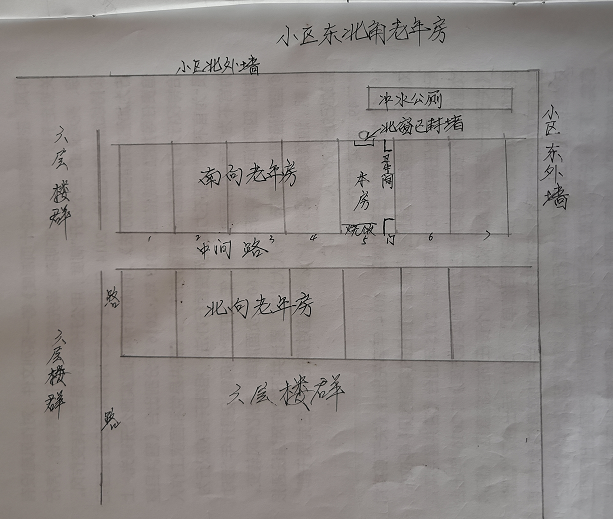 小区东北角老年房
小区北外墙
冲水公厕
北窗已封堵
小区东外墙
六层楼群
南向老年房
本房
卫车间
烧饭
门
1 2 3 4 5 6 7
中间路
路
北向老年房
六层楼群
六层楼群
路